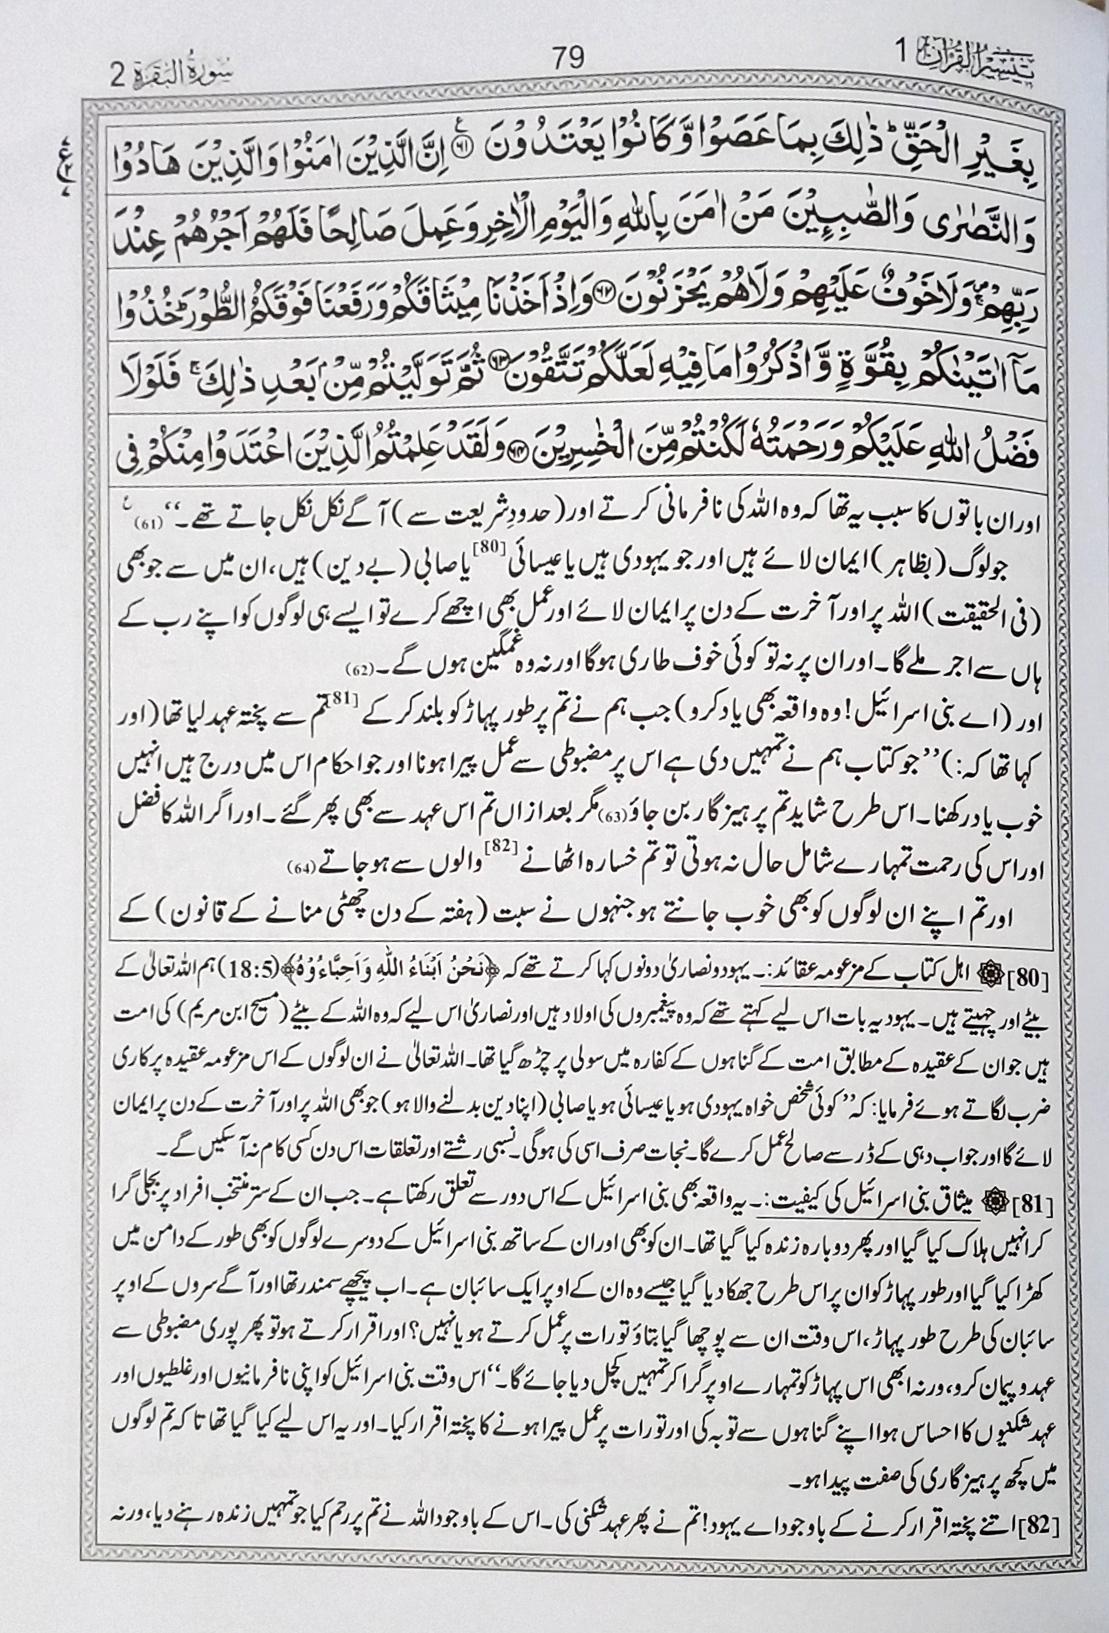 تيسير القرآن 1
79
سورة البقرة 2
بِغَيْرِ الْحَقِّ ؕ ذٰلِكَ بِمَا عَصَوْا وَّ كَانُوْا يَعْتَدُوْنَ ﴿۶۱﴾ ع اِنَّ الَّذِيْنَ اٰمَنُوْا وَالَّذِيْنَ هَادُوْا
وَالنَّصٰرٰى وَالصّٰبِـِٕيْنَ مَنْ اٰمَنَ بِاللّٰهِ وَالْيَوْمِ الْاٰخِرِ وَعَمِلَ صَالِحًا فَلَهُمْ اَجْرُهُمْ عِنْدَ
رَبِّهِمْ ۪ۚ وَلَا خَوْفٌ عَلَيْهِمْ وَلَا هُمْ يَحْزَنُوْنَ ﴿۶۲﴾ وَاِذْ اَخَذْنَا مِيْثَاقَكُمْ وَرَفَعْنَا فَوْقَكُمُ الطُّوْرَ ؕ خُذُوْا
مَآ اٰتَيْنٰكُمْ بِقُوَّةٍ وَّاذْكُرُوْا مَا فِيْهِ لَعَلَّكُمْ تَتَّقُوْنَ ﴿۶۳﴾ ثُمَّ تَوَلَّيْتُمْ مِّنْۢ بَعْدِ ذٰلِكَ ۚ فَلَوْلَا
فَضْلُ اللّٰهِ عَلَيْكُمْ وَرَحْمَتُهٗ لَكُنْتُمْ مِّنَ الْخٰسِرِيْنَ ﴿۶۴﴾ وَلَقَدْ عَلِمْتُمُ الَّذِيْنَ اعْتَدَوْا مِنْكُمْ فِى
اور ان باتوں کا سبب یہ تھا کہ وہ اللہ کی نافرمانی کرتے اور (حدودِ شریعت سے) آگے نکل نکل جاتے تھے۔‘‘ (61) ع
جو لوگ (بظاہر) ایمان لائے ہیں اور جو یہودی ہیں یا عیسائی [80] یا صابی (بے دین) ہیں، ان میں سے جو بھی
(فی الحقیقت) اللہ پر اور آخرت کے دن پر ایمان لائے اور عمل بھی اچھے کرے تو ایسے ہی لوگوں کو اپنے رب کے
ہاں سے اجر ملے گا۔ اور ان پر نہ تو کوئی خوف طاری ہوگا اور نہ وہ غمگین ہوں گے۔ (62)
اور (اے بنی اسرائیل! وہ واقعہ بھی یاد کرو) جب ہم نے تم پر طور پہاڑ کو بلند کر کے [81] تم سے پختہ عہد لیا تھا (اور
کہا تھا کہ:) ’’جو کتاب ہم نے تمہیں دی ہے اس پر مضبوطی سے عمل پیرا ہونا اور جو احکام اس میں درج ہیں انہیں
خوب یاد رکھنا۔ اس طرح شاید تم پرہیزگار بن جاؤ (63) مگر بعد ازاں تم اس عہد سے بھی پھر گئے۔ اور اگر اللہ کا فضل
اور اس کی رحمت تمہارے شامل حال نہ ہوتی تو تم خسارہ اٹھانے [82] والوں سے ہو جاتے (64)
اور تم اپنے ان لوگوں کو بھی خوب جانتے ہو جنہوں نے سبت (ہفتہ کے دن چھٹی منانے کے قانون) کے
[80] اہل کتاب کے مزعومہ عقائد:۔ یہود و نصاریٰ دونوں کہا کرتے تھے کہ ﴿نَحْنُ اَبْنَاءُ اللّٰهِ وَاَحِبَّاءُ وُهُ﴾ (18:5) ہم اللہ تعالیٰ کے
بیٹے اور چہیتے ہیں۔ یہود یہ بات اس لیے کہتے تھے کہ وہ پیغمبروں کی اولاد ہیں اور نصاریٰ اس لیے کہ وہ اللہ کے بیٹے (مسیح ابن مریم) کی امت
ہیں جو ان کے عقیدہ کے مطابق امت کے گناہوں کے کفارہ میں سولی پر چڑھ گیا تھا۔ اللہ تعالیٰ نے ان لوگوں کے اس مزعومہ عقیدہ پر کاری
ضرب لگاتے ہوئے فرمایا: کہ ’’کوئی شخص خواہ یہودی ہو یا عیسائی ہو یا صابی (اپنا دین بدلنے والا ہو) جو بھی اللہ پر اور آخرت کے دن پر ایمان
لائے گا اور جواب دہی کے ڈر سے صالح عمل کرے گا۔ نجات صرف اسی کی ہوگی۔ نسبی رشتے اور تعلقات اس دن کسی کام نہ آسکیں گے۔
[81] میثاق بنی اسرائیل کی کیفیت:۔ یہ واقعہ بھی بنی اسرائیل کے اس دور سے تعلق رکھتا ہے۔ جب ان کے ستر منتخب افراد پر بجلی گرا
کر انہیں ہلاک کیا گیا اور پھر دوبارہ زندہ کیا گیا تھا۔ ان کو بھی اور ان کے ساتھ بنی اسرائیل کے دوسرے لوگوں کو بھی طور کے دامن میں
کھڑا کیا گیا اور طور پہاڑ کو ان پر اس طرح جھکا دیا گیا جیسے وہ ان کے اوپر ایک سائبان ہے۔ اب پیچھے سمندر تھا اور آگے سروں کے اوپر
سائبان کی طرح طور پہاڑ، اس وقت ان سے پوچھا گیا بتاؤ تورات پر عمل کرتے ہو یا نہیں؟ اور اقرار کرتے ہو تو پھر پوری مضبوطی سے
عہد و پیمان کرو، ورنہ ابھی اس پہاڑ کو تمہارے اوپر گرا کر تمہیں کچل دیا جائے گا۔‘‘ اس وقت بنی اسرائیل کو اپنی نافرمانیوں اور غلطیوں اور
عہد شکنیوں کا احساس ہوا اپنے گناہوں سے توبہ کی اور تورات پر عمل پیرا ہونے کا پختہ اقرار کیا۔ اور یہ اس لیے کیا گیا تھا تا کہ تم لوگوں
میں کچھ پرہیزگاری کی صفت پیدا ہو۔
[82] اتنے پختہ اقرار کرنے کے باوجود اے یہود! تم نے پھر عہد شکنی کی۔ اس کے باوجود اللہ نے تم پر رحم کیا جو تمہیں زندہ رہنے دیا، ورنہ